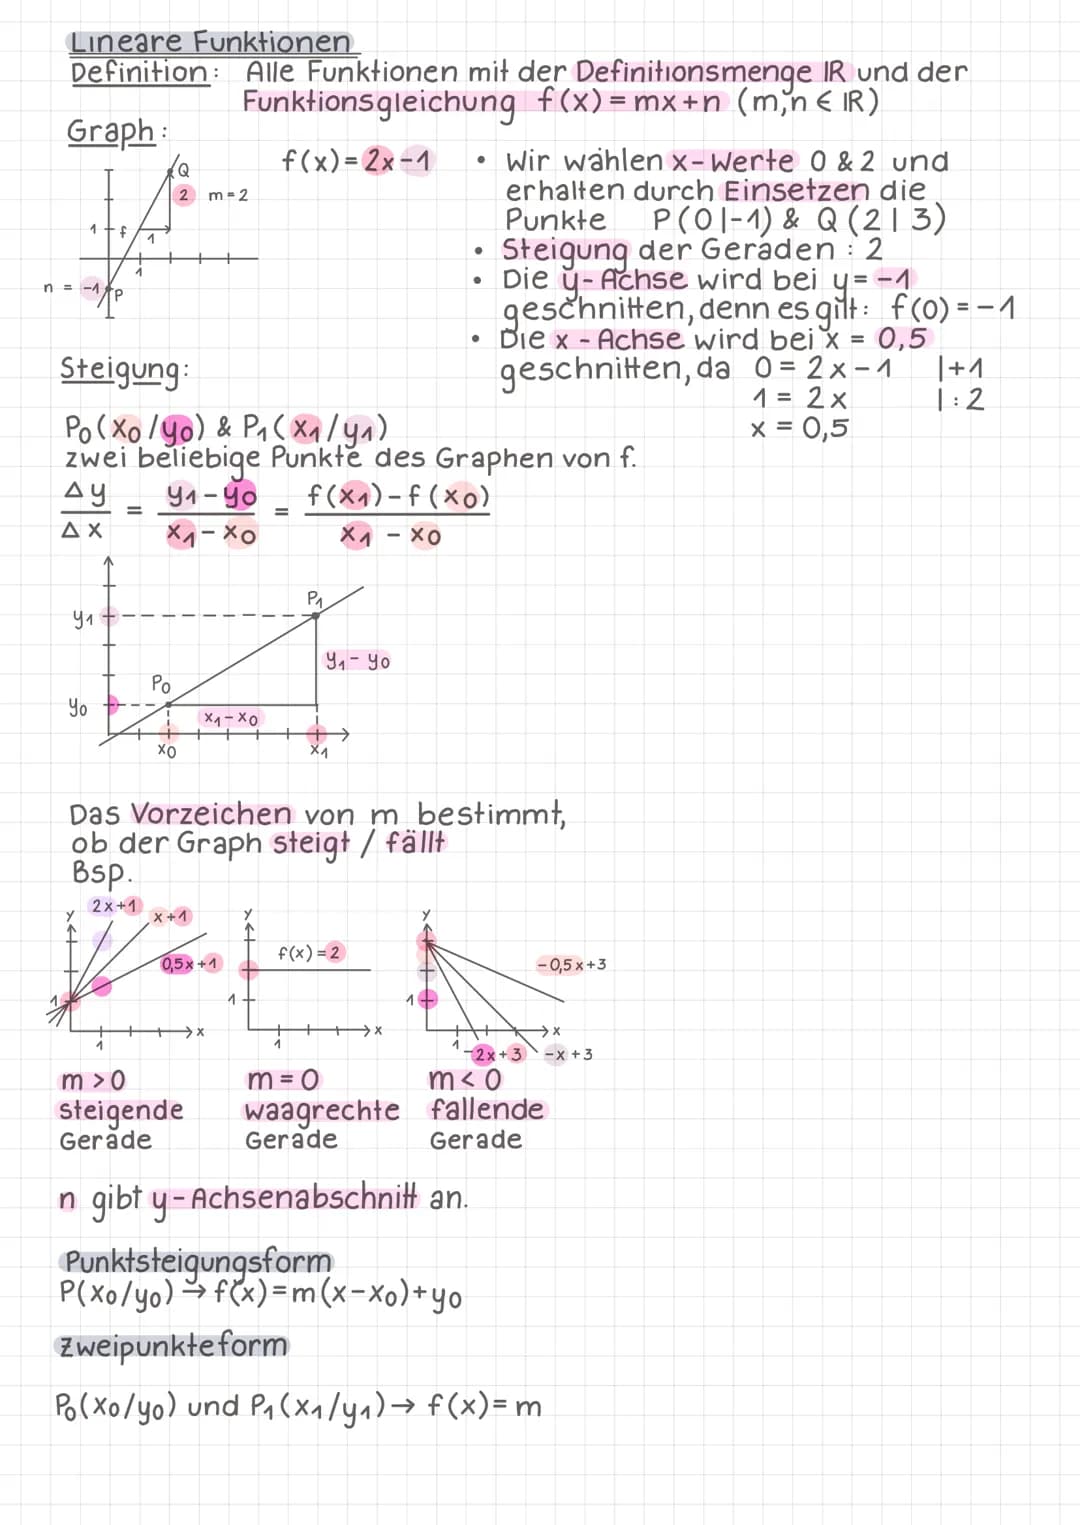 Lineare Funktionen
Definition: Alle Funktionen mit der Definitionsmenge IR und der
Funktionsgleichung f(x) = mx+n (m,n ∈ IR)
Graph:
f(x)=2x-1
Q
2 m=2
1 f
1
1
n = -1 P
• Wir wählen x-Werte 0 & 2 und
erhalten durch Einsetzen die
Punkte P(0|-1) & Q(2|3)
• Steigung der Geraden : 2
• Die y-Achse wird bei y=-1
geschnitten, denn es gilt: f(0)=-1
• Die x-Achse wird bei x = 0,5
geschnitten, da 0 = 2x-1 |+1
1 = 2x |:2
x = 0,5
Steigung:
P₀(x₀/y₀) & P₁(x₁/y₁)
zwei beliebige Punkte des Graphen von f.
Δy/Δx = (y₁-y₀)/(x₁-x₀) = (f(x₁)-f(x₀))/(x₁-x₀)
P₁
y₁
y₁-y₀
P₀
y₀
x₁-x₀
x₀ x₁
Das Vorzeichen von m bestimmt,
ob der Graph steigt / fällt
Bsp.
y 2x+1 x+1
0,5x+1
1
1 x
y
f(x)=2
1
1 x
y
-0,5x+3
1
1 x
-2x+3 -x+3
m >0 m=0 m<0
steigende waagrechte fallende
Gerade Gerade Gerade
n gibt y-Achsenabschnitt an.
Punktsteigungsform
P(x₀/y₀) → f(x)=m(x-x₀)+y₀
Zweipunkteform
P₀(x₀/y₀) und P₁(x₁/y₁) → f(x)= m